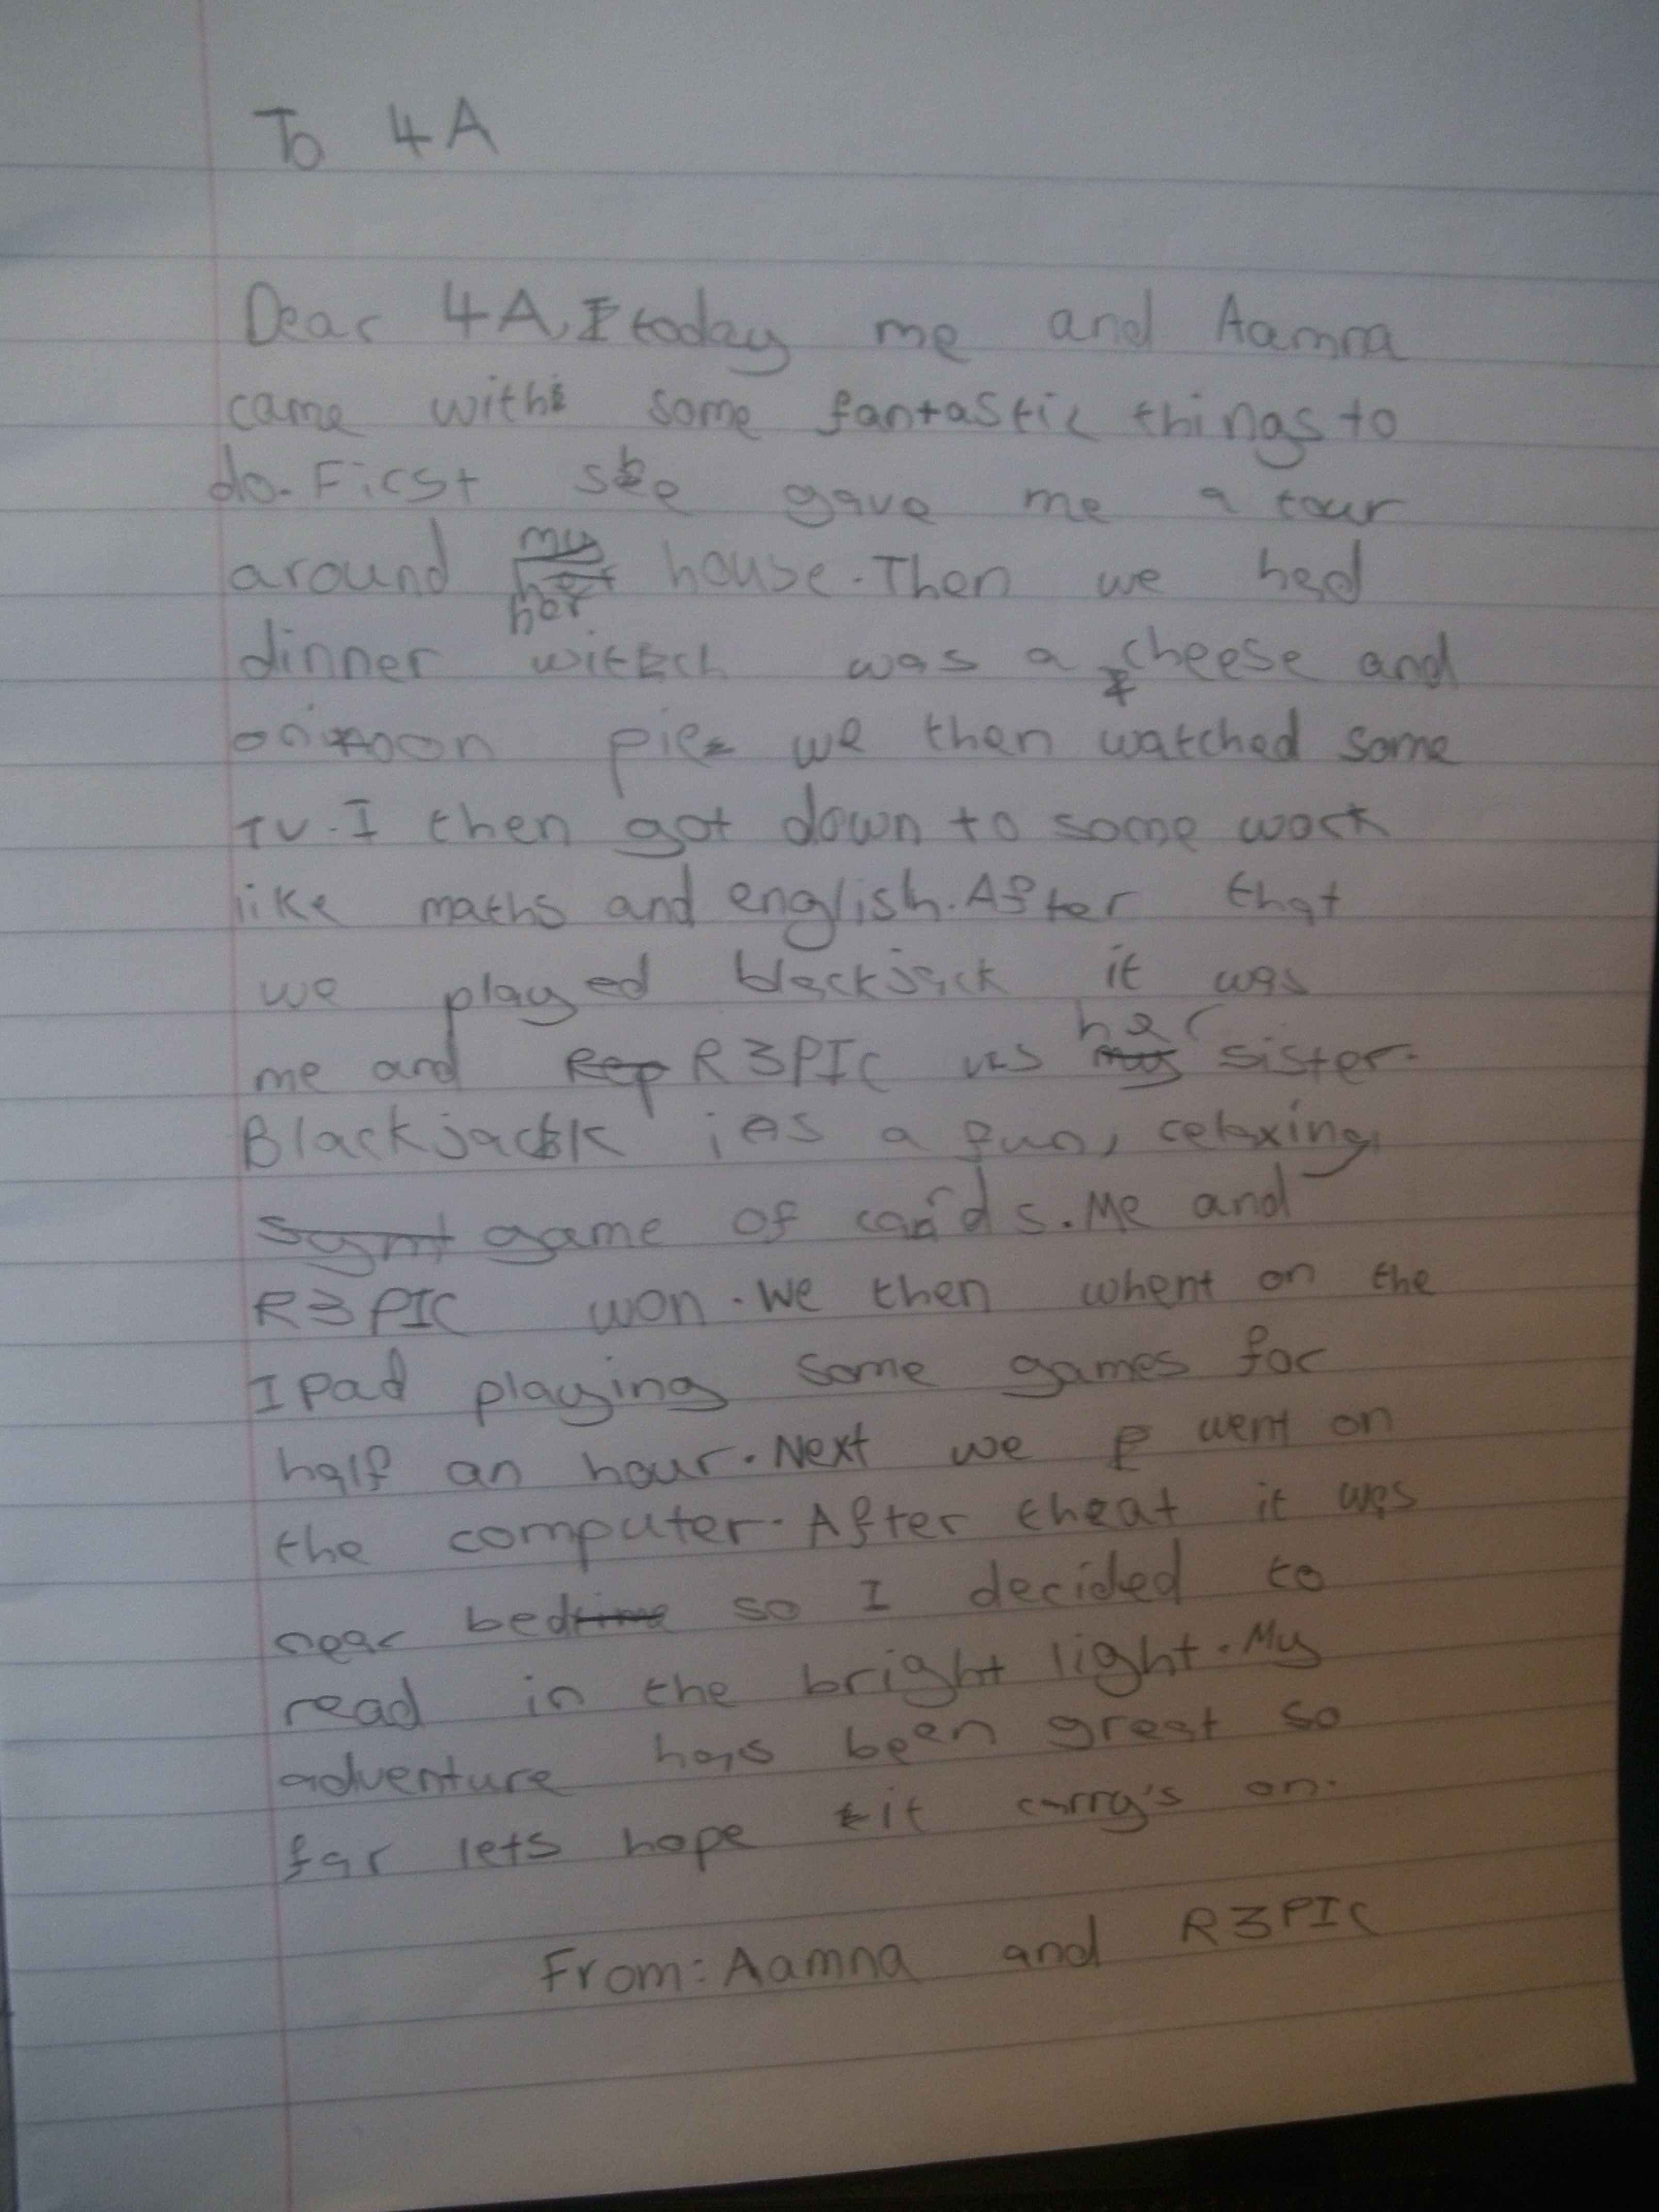 To 4A
Dear 4A, today me and Aamna
came with some fantastic things to
do. First she gave me a tour
around her house. Then we had
dinner witch was a cheese and
onioon pie we then watched some
TV. I then got down to some work
like maths and english. After that
we played blackjack it was
me and R3PIC vs her sister.
Blackjack is a fun, relaxing,
game of cards. Me and
R3PIC won. We then whent on the
Ipad playing some games for
half an hour. Next we went on
the computer. After that it was
near bed so I decided to
read in the bright light. My
adventure has been great so
far lets hope it carry's on.
From: Aamna and R3PIC